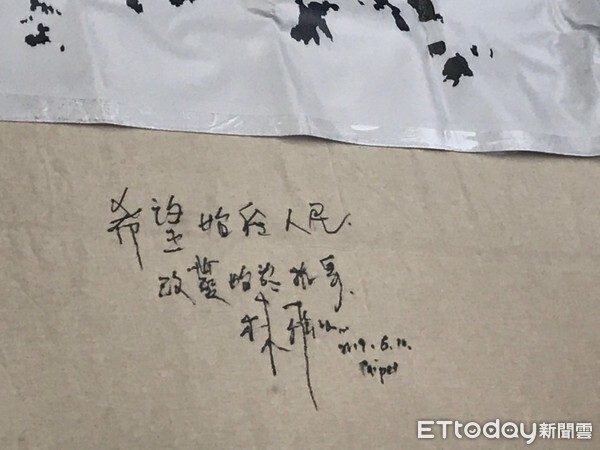 希望始於人民.
改變始於抗爭.
林
2019.6.
Taipei
ETtoday新聞雲